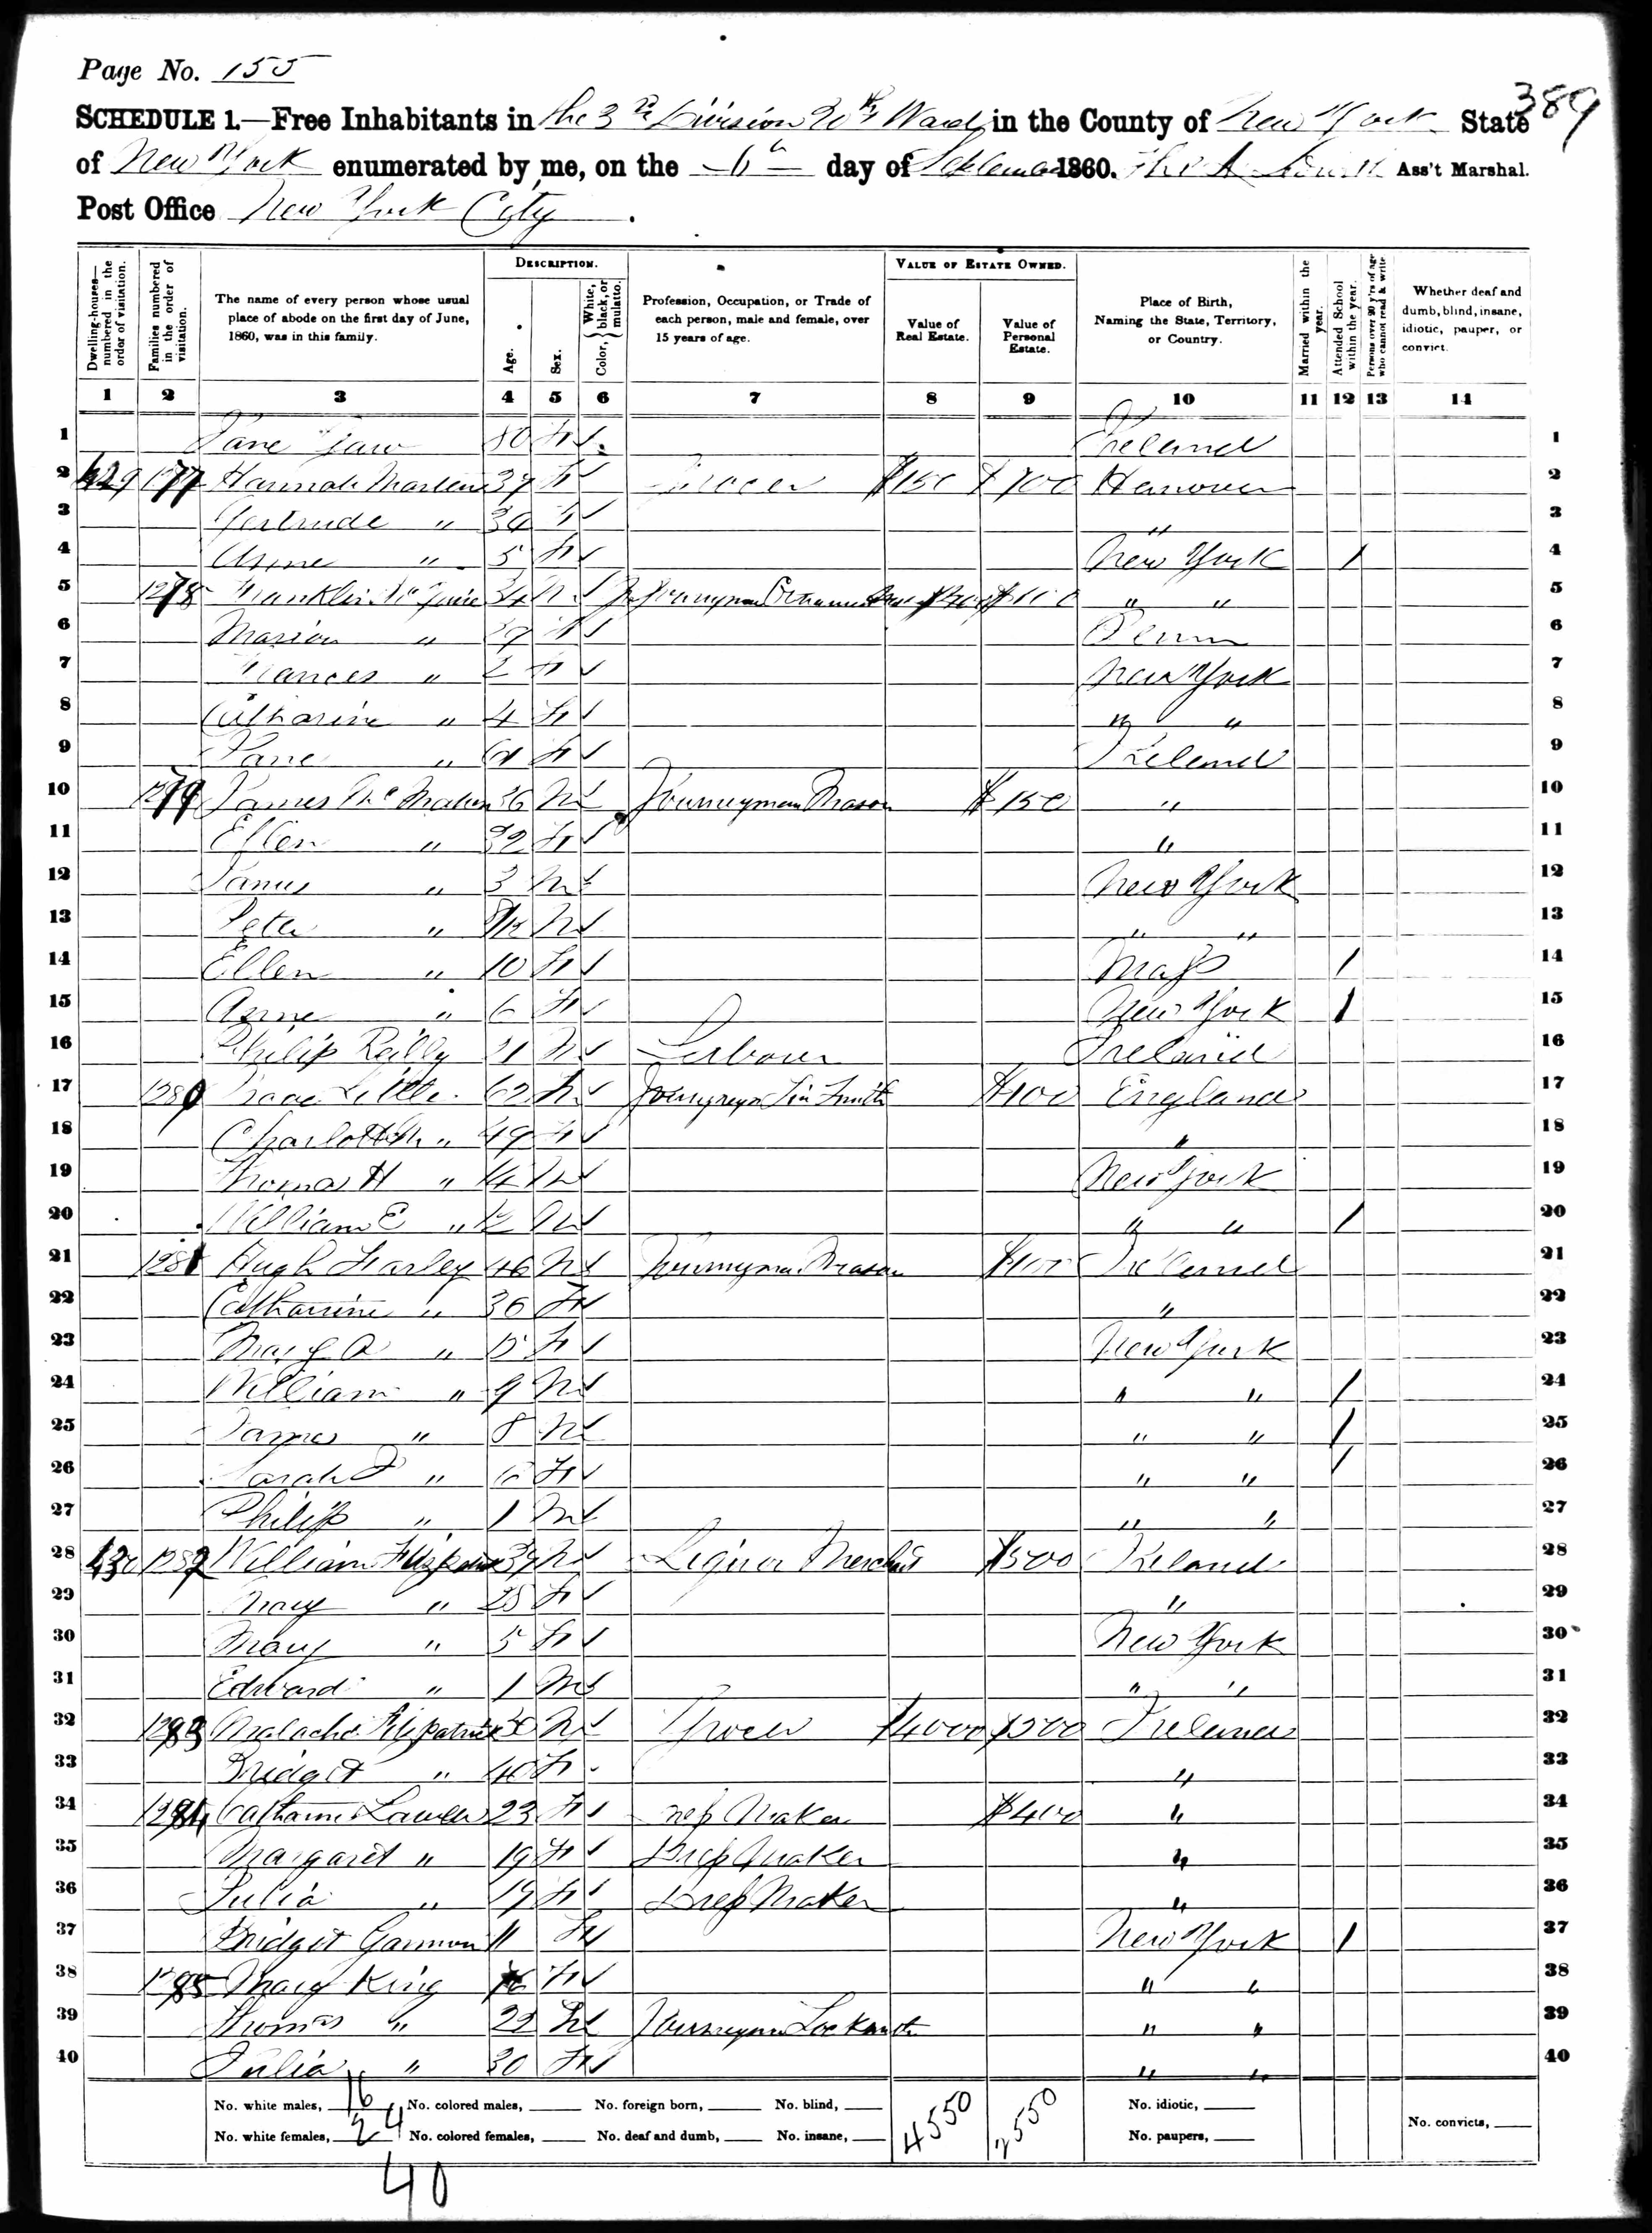 Page No. 155
389
SCHEDULE 1.—Free Inhabitants in the 3rd Division 20th Ward in the County of New York State
of New York enumerated by me, on the 6th day of September 1860. Ass't Marshal.
Post Office New York City.
Dwelling-houses—numbered in the order of visitation.
Families numbered in the order of visitation.
The name of every person whose usual place of abode on the first day of June, 1860, was in this family.
DESCRIPTION.
Age.
Sex.
Color, {White, black, or mulatto.
Profession, Occupation, or Trade of each person, male and female, over 15 years of age.
VALUE OF ESTATE OWNED.
Value of Real Estate.
Value of Personal Estate.
Place of Birth, Naming the State, Territory, or Country.
Married within the year.
Attended School within the year.
Persons over 20 y'rs of age who cannot read & write
Whether deaf and dumb, blind, insane, idiotic, pauper, or convict.
1 2 3 4 5 6 7 8 9 10 11 12 13 14
1 Jane 80 F Ireland 1
2 429 Hannah 37 F Grocer $150 $700 Hanover 2
3 Gertrude " F " 3
4 Anne " 5 F New York / 4
5 1278 Franklin 34 M Journeyman " " 5
6 Marion " F Penn 6
7 Frances " 2 F New York 7
8 Catharine " 4 F " " 8
9 Jane " F Ireland 9
10 1279 James McMahon 36 M Journeyman Mason $150 " 10
11 Ellen " 32 F " 11
12 James " 3 M New York 12
13 Peter " M " " 13
14 Ellen " 10 F Mass / 14
15 Anne " 6 F New York / 15
16 Philip Reilly 21 M Labourer Ireland 16
17 1280 Isaac Little 62 M Journeyman Tin Smith $100 England 17
18 Charlotte M " 49 F " 18
19 Thomas H " 14 M New York 19
20 William E " 12 M " " / 20
21 1281 Hugh Farley 46 M Journeyman Mason $100 Ireland 21
22 Catharine " 36 F " 22
23 Mary A " F New York 23
24 William " 9 M " " / 24
25 James " 8 M " " / 25
26 Sarah " 6 F " " / 26
27 Philip " 1 M " " 27
28 430 1282 William Fitzpatrick 39 M Liquor Merchant $500 Ireland 28
29 Mary " F " 29
30 Mary " 5 F New York 30
31 Edward " 1 M " " 31
32 1283 Malachi Fitzpatrick 50 M Grocer $4000 $500 Ireland 32
33 Bridget " 40 F " 33
34 1284 Catharine Lawler 23 F Dress Maker $400 " 34
35 Margaret " 19 F Dress Maker " 35
36 Julia " F Dress Maker " 36
37 Bridget Gannon 11 F New York / 37
38 1285 Mary King F " " 38
39 Thomas " 22 M Journeyman Locksmith " " 39
40 Julia " 30 F " " 40
No. white males, 16 No. colored males, No. foreign born, No. blind, 4550 2550 No. idiotic,
No. white females, 24 No. colored females, No. deaf and dumb, No. insane, No. paupers, No. convicts,
40